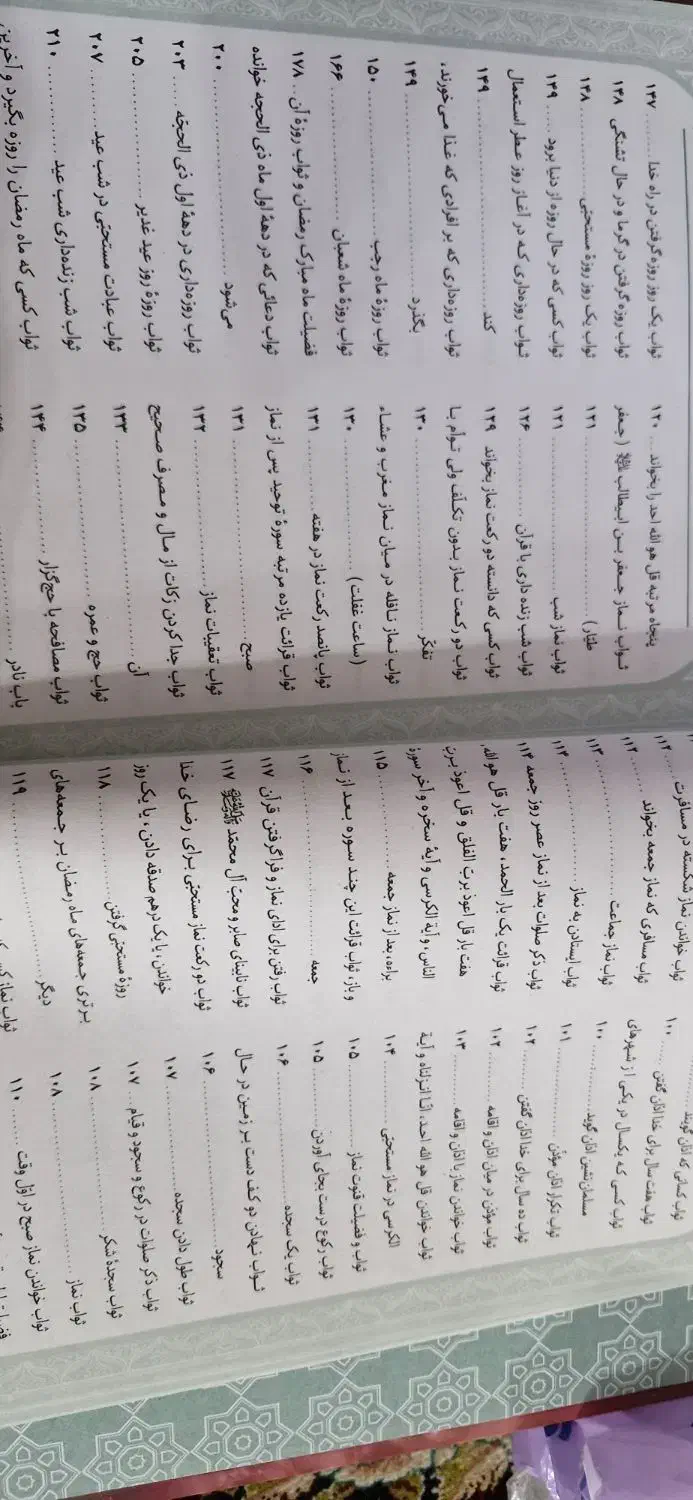 ثواب کسانی که اذان گویند
ثواب هفت سال برای خدا اذان گفتن ... ۱۰۰
ثواب کسی که یکسال در یکی از شهرهای
مسلمان‌نشین اذان گوید ... ۱۰۰
ثواب تکرار اذان مؤذّن ... ۱۰۱
ثواب ده سال برای خدا اذان گفتن ... ۱۰۲
ثواب مؤذن در میان اذان و اقامه ... ۱۰۲
ثواب خواندن نماز با اذان و اقامه ... ۱۰۳
ثواب خواندن قل هو الله احد، انّا انزلناه و آیة
الکرسی در نماز مستحبّی ... ۱۰۴
ثواب و فضیلت قنوت نماز ... ۱۰۵
ثواب رکوع درست بجای آوردن ... ۱۰۵
ثواب یک سجده ... ۱۰۶
ثواب نهادن دو کف دست بر زمین در حال
سجود ... ۱۰۶
ثواب طول دادن سجده ... ۱۰۷
ثواب ذکر صلوات در رکوع و سجود و قیام ... ۱۰۷
ثواب سجدۀ شکر ... ۱۰۸
ثواب نماز ... ۱۰۸
ثواب خواندن نماز صبح در اوّل وقت ... ۱۱۰
ثواب خواندن نماز شکسته در مسافرت ... ۱۱۲
ثواب مسافری که نماز جمعه بخواند ... ۱۱۲
ثواب نماز جماعت ... ۱۱۳
ثواب ایستادن به نماز ... ۱۱۴
ثواب ذکر صلوات بعد از نماز عصر روز جمعه ۱۱۴
ثواب قرائت یک بار الحمد، هفت بار قل هوالله،
هفت بار قل اعوذ بربّ الفلق و قل اعوذ بربّ
الناس، و آیة الکرسی و آیۀ سخره و آخر سورۀ
براءه، بعد از نماز جمعه ... ۱۱۵
و باز، ثواب قرائت این چند سوره بعد از نماز
جمعه ... ۱۱۶
ثواب رفتن برای ادای نماز و فراگرفتن قرآن ۱۱۷
ثواب نابینای صابر و محبّ آل محمّد ﷺ ۱۱۷
ثواب دو رکعت نماز مستحبّی برای رضای خدا
خواندن، با یک درهم صدقه دادن، یا یک روز
روزۀ مستحبّی گرفتن ... ۱۱۸
برتری جمعه‌های ماه رمضان بر جمعه‌های
دیگر ... ۱۱۹
پنجاه مرتبه قل هو الله احد را بخواند ... ۱۲۰
ثواب نماز جعفر بن ابیطالب (جعفر
طیّار) ... ۱۲۱
ثواب نماز شب ... ۱۲۱
ثواب شب زنده داری با قرآن ... ۱۲۶
ثواب کسی که دانسته دو رکعت نماز بخواند ۱۲۹
ثواب دو رکعت نماز بدون تکلّف ولی توأم با
تفکّر ... ۱۳۰
ثواب نماز نافله در میان نماز مغرب و عشاء
(ساعت غفلت) ... ۱۳۰
ثواب پانصد رکعت نماز در هفته ... ۱۳۱
ثواب قرائت یازده مرتبه سورۀ توحید پس از نماز
صبح ... ۱۳۱
ثواب تعقیبات نماز ... ۱۳۲
ثواب جدا کردن زکات از مال و مصرف صحیح
آن ... ۱۳۳
ثواب حج و عمره ... ۱۳۵
ثواب مصافحه با حج‌گزار ... ۱۴۴
باب نادر
ثواب یک روز روزه گرفتن در راه خدا ... ۱۴۷
ثواب روزه گرفتن در گرما و در حال تشنگی ۱۴۸
ثواب یک روز روزۀ مستحبّی ... ۱۴۸
ثواب کسی که در حال روزه از دنیا برود ... ۱۴۹
ثواب روزه‌داری که در آغاز روز عطر استعمال
کند ... ۱۴۹
ثواب روزه‌داری که بر افرادی که غذا می‌خورند،
بگذرد ... ۱۴۹
ثواب روزۀ ماه رجب ... ۱۵۰
ثواب روزۀ ماه شعبان ... ۱۶۶
فضیلت ماه مبارک رمضان و ثواب روزۀ آن ... ۱۷۸
ثواب دعائی که در دهۀ اول ماه ذی الحجه خوانده
می‌شود ... ۲۰۰
ثواب روزه‌داری در دهۀ اول ذی الحجّه ... ۲۰۳
ثواب روزۀ روز عید غدیر ... ۲۰۵
ثواب عبادت مستحبّی در شب عید ... ۲۰۷
ثواب شب زنده‌داری شب عید ... ۲۱۰
ثواب کسی که ماه رمضان را روزه بگیرد و آخرین